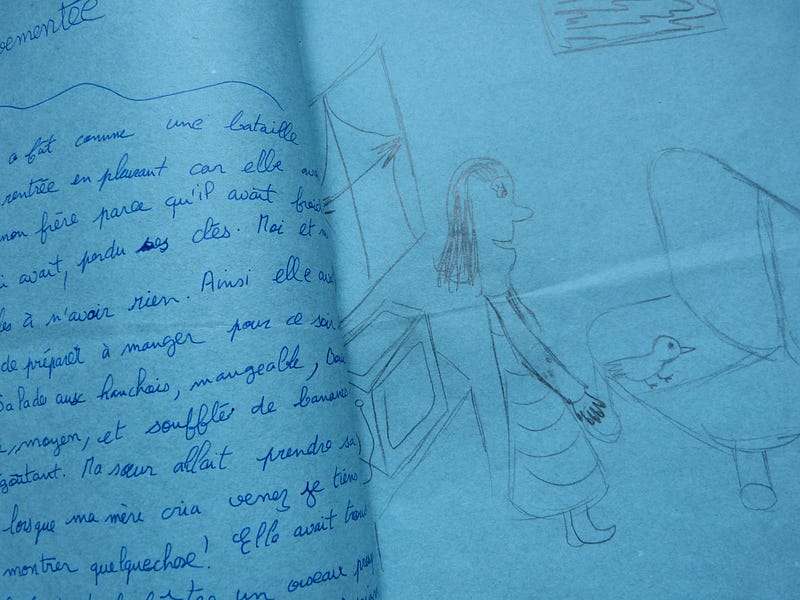 ementée
a fût comme une bataille
rentrée en pleurant car elle
mon frère parce qu'il avait froid
avait, perdu ses clés. Moi et
à n'avoir rien. Ainsi elle
de préparer à manger pour ce soir
Salade aux hanchois, mangeable,
moyen, et soufflé de bananes
Ma sœur allait prendre sa
lorsque ma mère cria venez je tiens
montrer quelquechose! Elle avait
un oiseau